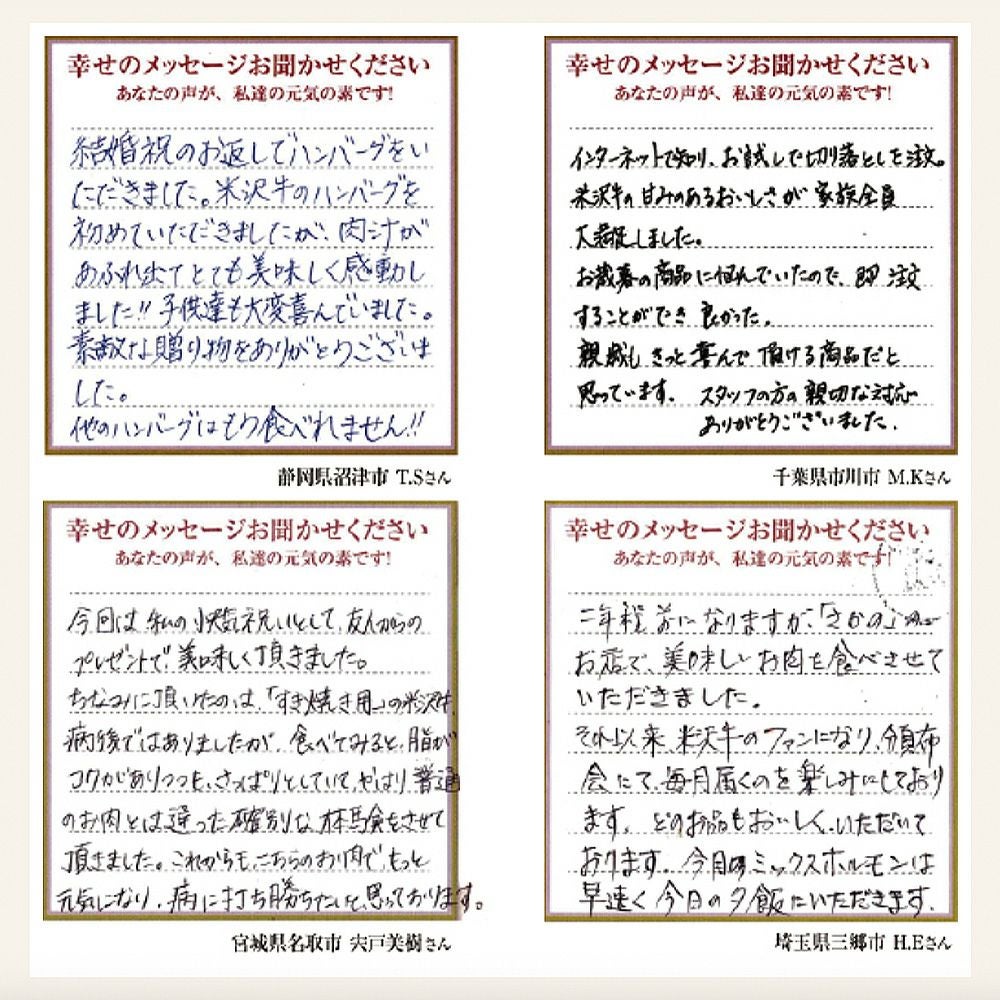 幸せのメッセージお聞かせください
あなたの声が、私達の元気の素です!
結婚祝のお返しでハンバーグをい
ただきました。米沢牛のハンバーグを
初めていただきましたが、肉汁が
あふれ出てとても美味しく感動し
ました!! 子供達も大変喜んでいました。
素敵な贈り物をありがとうございま
した。
他のハンバーグはもう食べれません!!
静岡県沼津市 T.Sさん
幸せのメッセージお聞かせください
あなたの声が、私達の元気の素です!
インターネットで知り、お試しで切り落としを注文。
米沢牛の甘みのあるおいしさが 家族全員
大満足しました。
お歳暮の商品に悩んでいたので、即 注文
することができ 良かった。
親戚も きっと喜んで 頂ける商品だと
思っています。 スタッフの方の親切な対応
ありがとうございました。
千葉県市川市 M.Kさん
幸せのメッセージお聞かせください
あなたの声が、私達の元気の素です!
今回は 私の 快気祝いとして、友人からの
プレゼントで 美味しく頂きました。
ちなみに頂いたのは、「すき焼き用」の米沢牛、
病後ではありましたが、食べてみると、脂が
コクがありつつも、さっぱりとしていて、やはり 普通
のお肉とは違った 格別な 体験をさせて
頂きました。これからも、こちらのお肉で、もっと
元気になり、病に打ち勝ちたいと、思っております。
宮城県名取市 宍戸美樹さん
幸せのメッセージお聞かせください
あなたの声が、私達の元気の素です!
二年程 前に なりますが、「さかの」
お店で、美味しい お肉を食べさせて
いただきました。
それ以来、米沢牛のファンになり、頒布
会にて、毎月届くのを楽しみにしており
ます。どのお品もおいしく、いただいて
おります。今月の ミックスホルモンは
早速く 今日の夕飯にいただきます。
埼玉県三郷市 H.Eさん